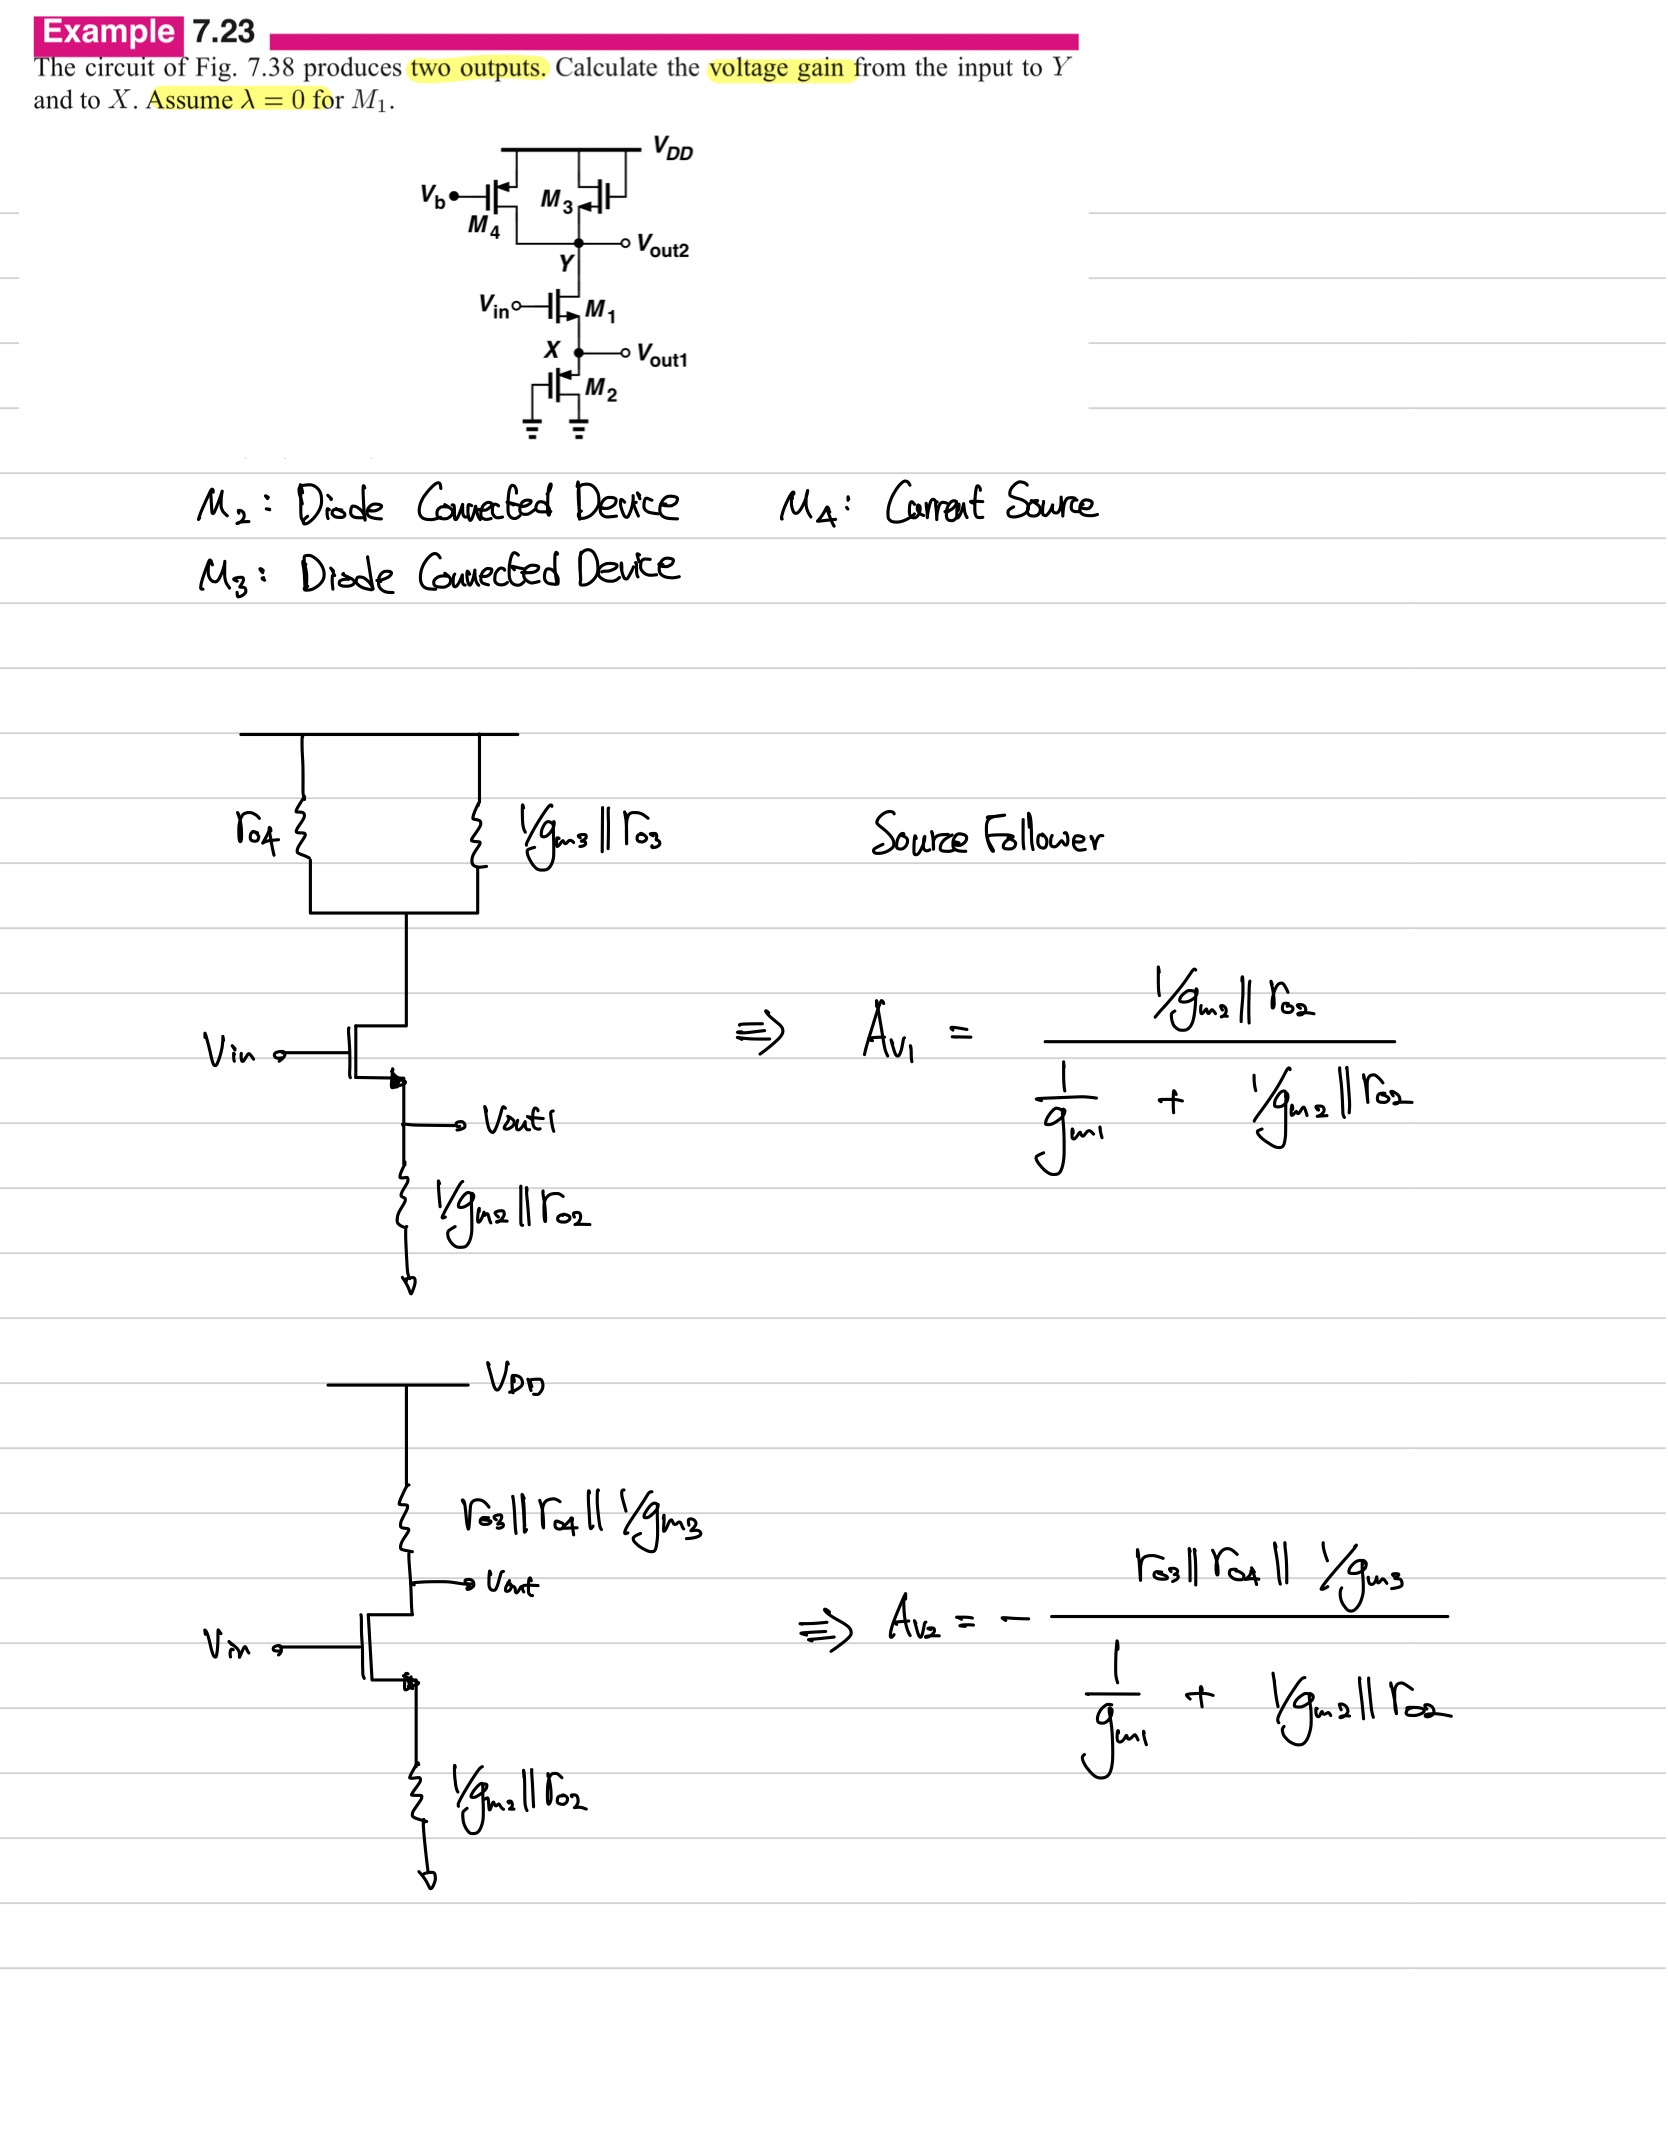 Example 7.23
The circuit of Fig. 7.38 produces two outputs. Calculate the voltage gain from the input to Y
and to X. Assume λ = 0 for M₁.
V_DD
V_b M₃
M₄
V_out2
Y
V_in M₁
X V_out1
M₂
M₂ : Diode Connected Device M₄ : Current Source
M₃ : Diode Connected Device
r₀₄ 1/gm₃ || r₀₃ Source Follower
Vin ⇒ Av₁ = (1/gm₂ || r₀₂) / (1/gm₁ + 1/gm₂ || r₀₂)
Vout1
1/gm₂ || r₀₂
V_DD
r₀₃ || r₀₄ || 1/gm₃
Vout
Vin ⇒ Av₂ = − (r₀₃ || r₀₄ || 1/gm₃) / (1/gm₁ + 1/gm₂ || r₀₂)
1/gm₂ || r₀₂